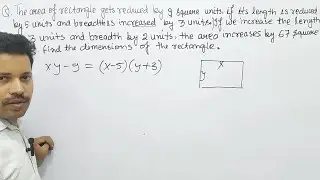 Q. The area of rectangle gets reduced by 9 square
units if its length is reduced
by 5 units and breadth is increased by 3 units. If we increase the length
3 units and breadth by 2 units. the area increases by 67 square
find the dimensions of the rectangle.
xy-9 = (x-5)(y+3)
x
y